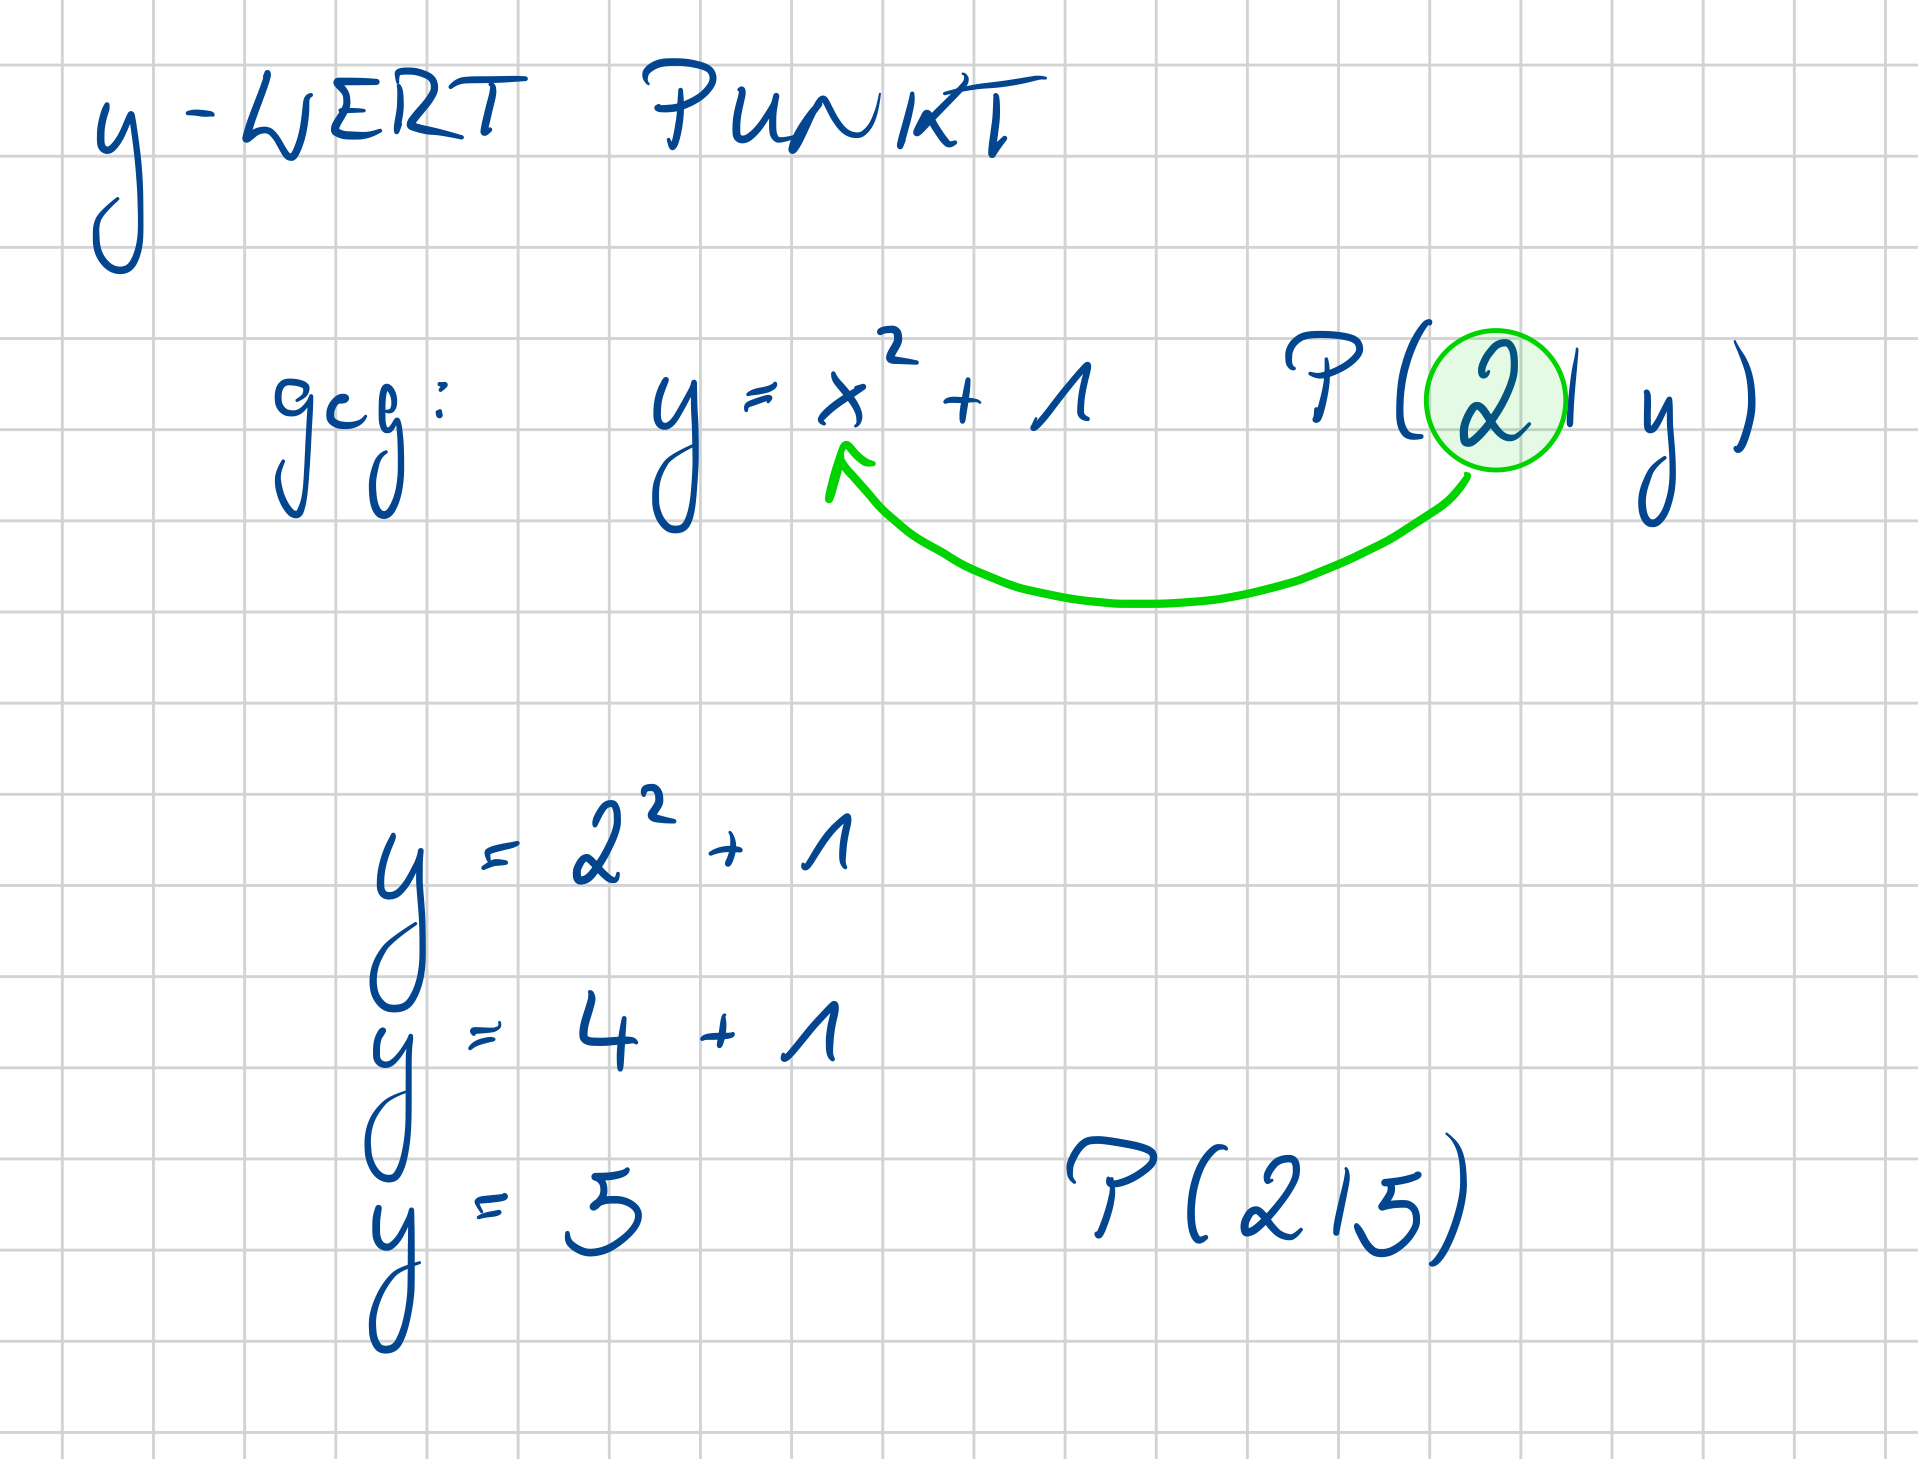 y-WERT PUNKT
geg: y = x² + 1 P(2|y)
y = 2² + 1
y = 4 + 1
y = 5 P(2|5)